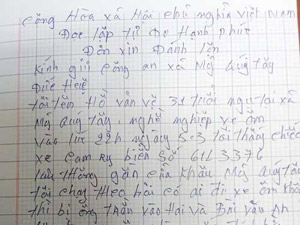 Công Hòa xá Hội chủ nghĩa việt Nam
Đọc lập tử Do Hạnh phúc
Đơn xin Đánh lộn
Kính gửi Công an xá Mỹ Quý tây
Đức Huệ
tôi tên Hồ văn vẽ 31 tuổi ngụ tại xá
Mỹ Quý tây, nghề nghiệp xe ôm
vào lúc 22h ngày 5-3 tôi thấy chiếc
xe Camry biển số 61L 3376
gần cửa khẩu Mỹ Quý tây
tôi chạy theo hỏi có ai đi xe ôm
thì bị ông thần vào